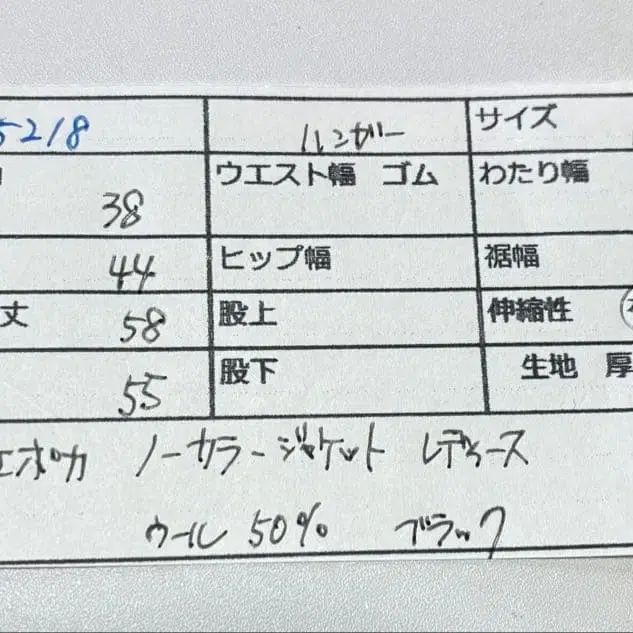 5218 ハンガー サイズ
38 ウエスト幅 ゴム わたり幅
44 ヒップ幅 裾幅
丈 58 股上 伸縮性
55 股下 生地 厚
エポカ ノーカラージャケット レディース
ウール 50% ブラック